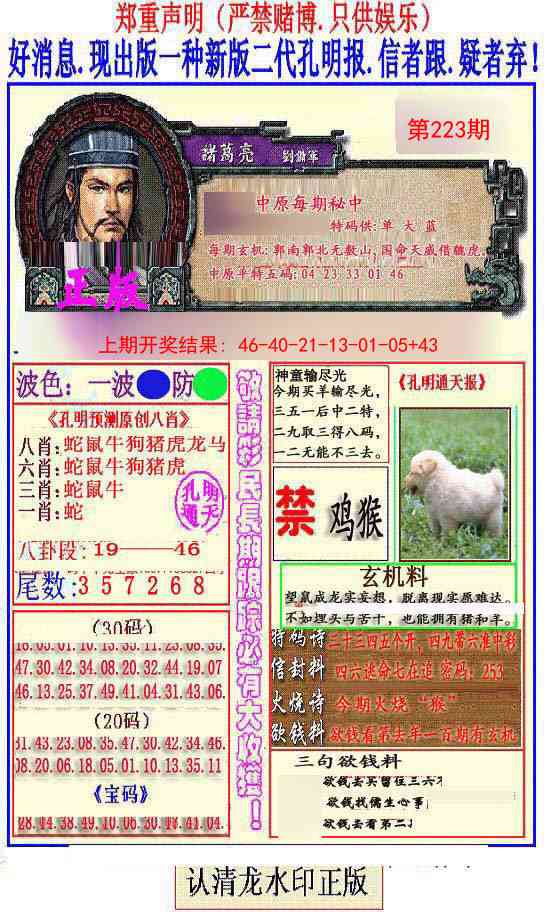 郑重声明（严禁赌博.只供娱乐）
好消息.现出版一种新版二代孔明报.信者跟.疑者弃！
第223期
諸葛亮
中原每期秘中
特码供:单 大 蓝
每期玄机:郭南郭北无数山,国命天威借魏虎.
中原平特五码:04 23 33 01 46
正版
上期开奖结果: 46-40-21-13-01-05+43
波色：一波 防
《孔明预测原创八肖》
八肖:蛇鼠牛狗猪虎龙马
六肖:蛇鼠牛狗猪虎
三肖:蛇鼠牛
一肖:蛇
孔明
通天
八卦段:19——46
尾数:357268
(30码)
18.03.01.10.13.35.11.23.08.33.
47.30.42.34.08.20.32.44.19.07
46.13.25.37.49.41.04.31.43.06.
(20码)
31.43.23.08.35.47.30.42.34.46.
08.20.06.18.05.01.10.13.35.11
《宝码》
28.14.38.49.10.06.30.47.41.04.
敬請彩民長期跟踪必有大收獲！
神童输尽光
今期买羊输尽光，
三五一后中二特，
二九取三得八码，
一二无能不三去。
《孔明通天报》
禁
鸡猴
玄机料
望鼠成龙实妄想，脱离现实愿难达。
不如埋头与苦干，也能拥有猪和羊。
特码诗 三十三四五个开，四九蕾六准中彩
信封料 四六逃命七在追 密码：253
火烧诗 今期火烧“猴”
欲钱料 欲钱看第去年一百期有玄机
三句欲钱料
欲钱去买留位三六
欲钱找儒生心事
欲钱去看第二
认清龙水印正版